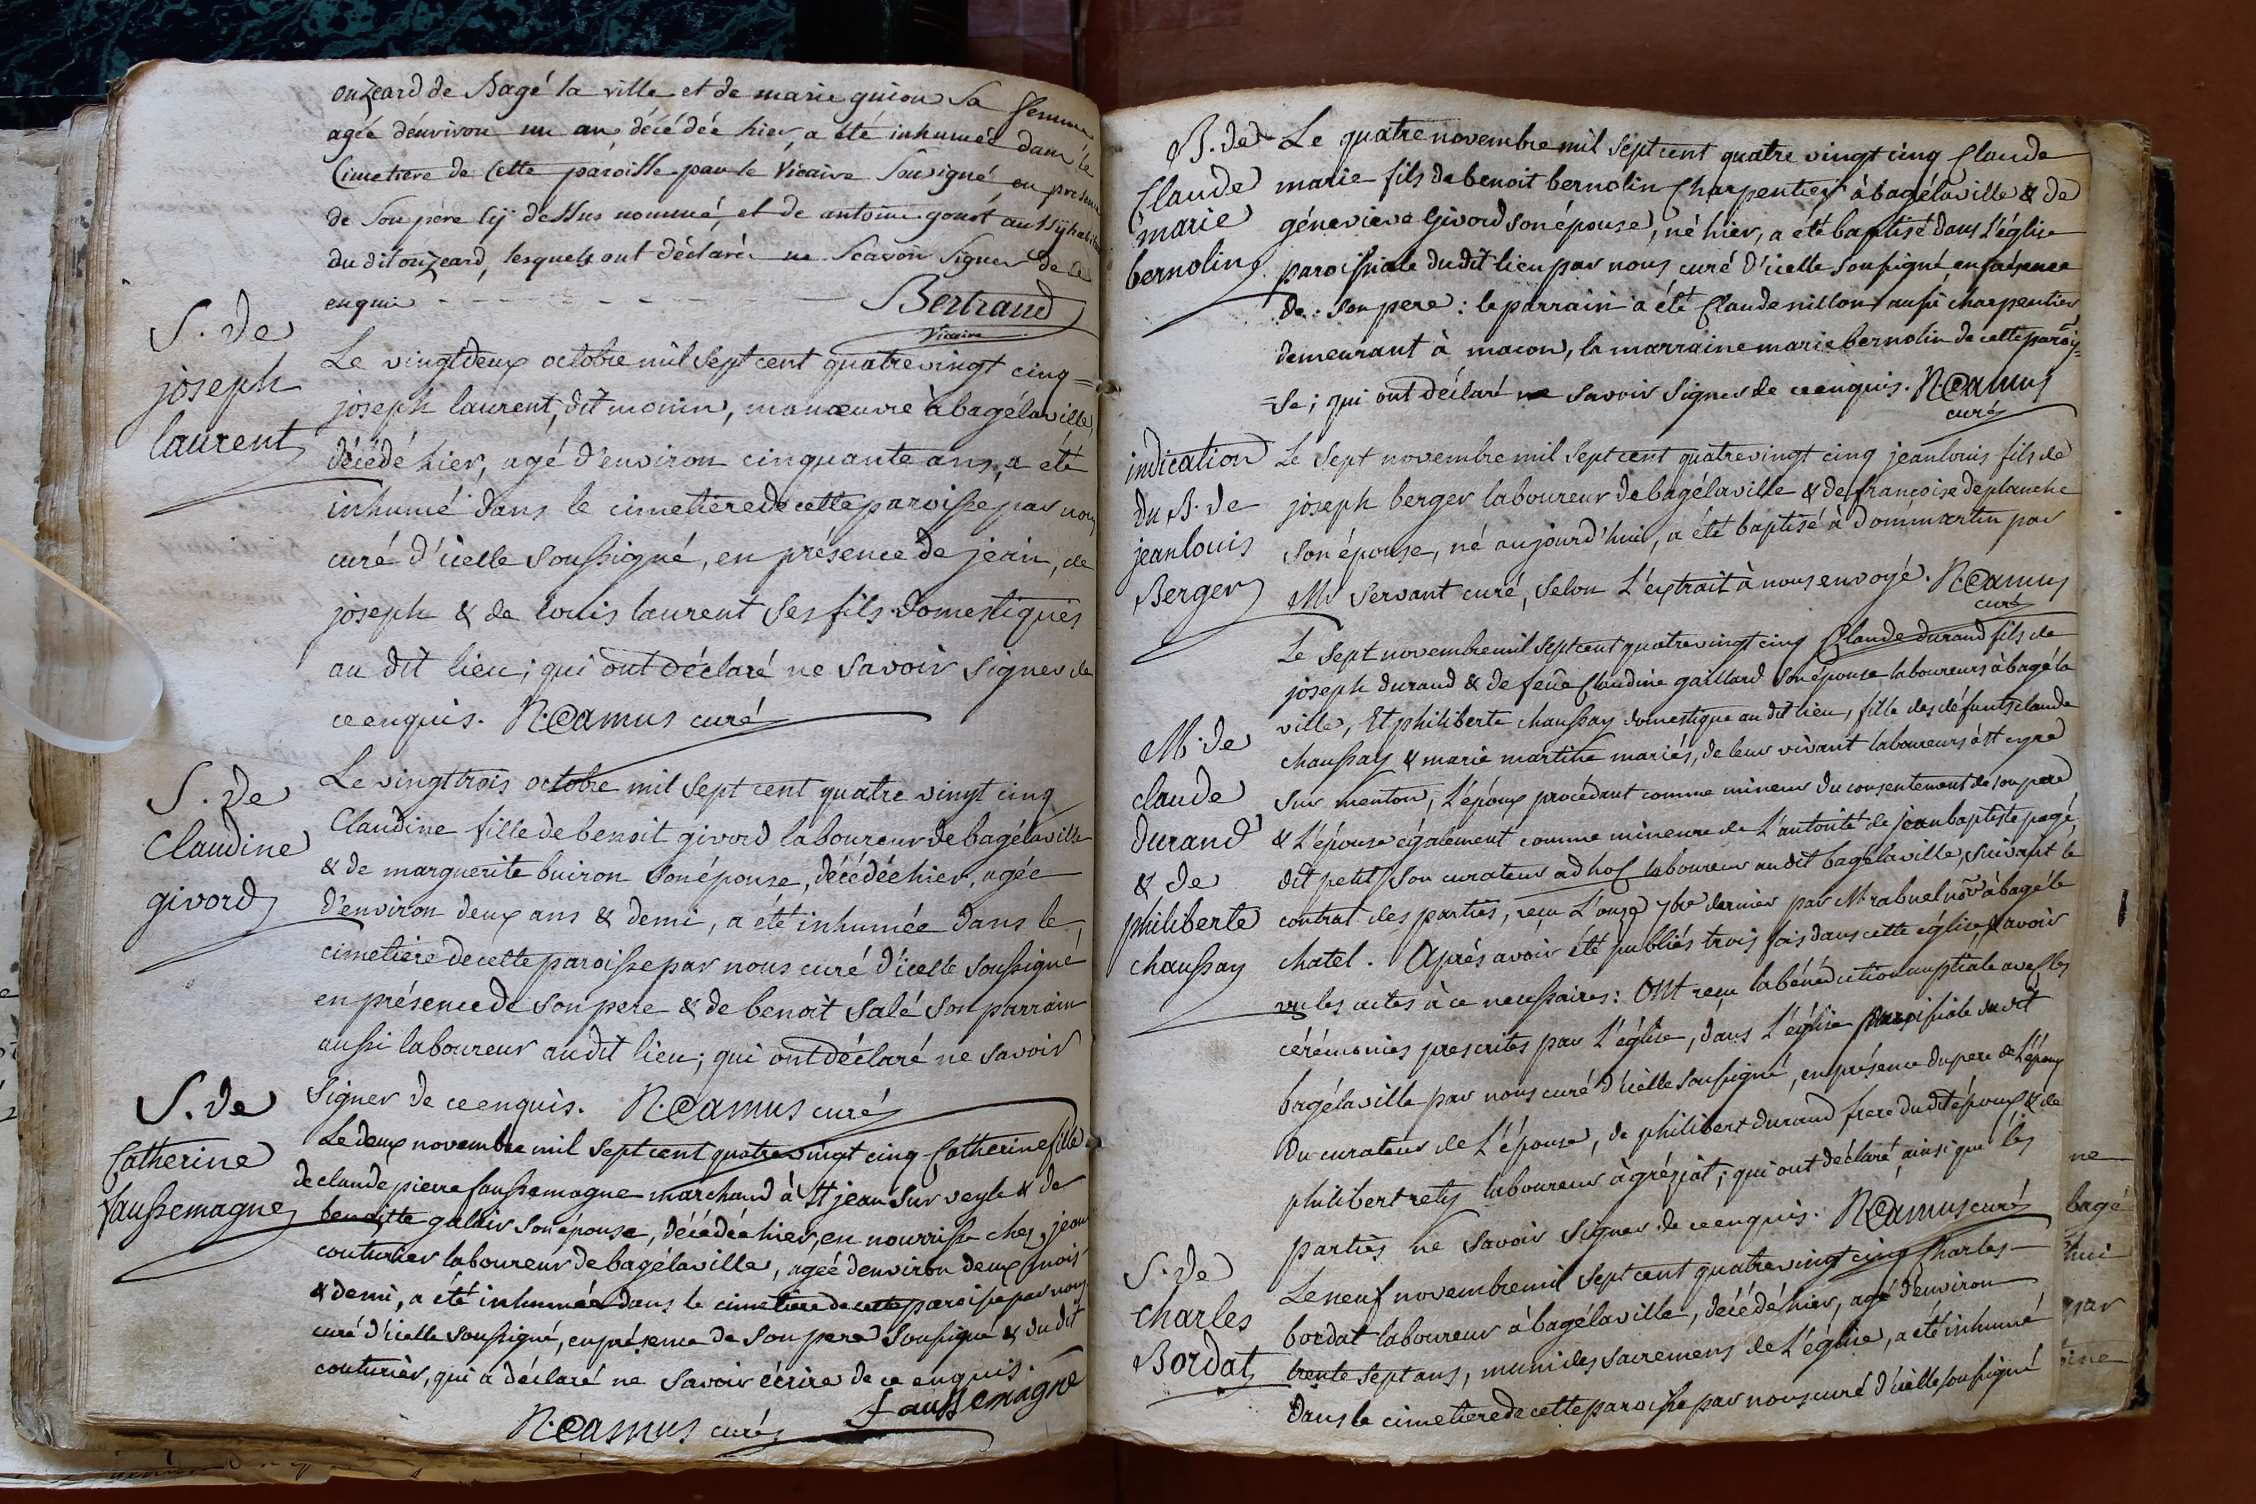 onzeard de Bagé la ville et de marie guion sa femme
agée d'environ un an décédée hier, a été inhumée dans le
Cimetiere de Cette paroisse par le Vicaire Sousigné en presence
de Son pere Cy dessus nommé, et de antoine gonot aussy
du dit onzeard, lesquels ont déclaré ne Scavoir Signer de ce
enquis - - - - - - - - Bertrand
Vicaire
S. de
joseph
laurent
Le vingtdeux octobre mil Sept cent quatre vingt cinq =
joseph laurent, dit monin, manœuvre à bagélaville,
décédé hier, agé d'environ cinquante ans, a été
inhumé dans le cimetiere de cette paroisse, par nous
curé d'icelle Soussigné, en présence de jean, de
joseph & de louis laurent Ses fils domestiques
au dit lieu; qui ont déclaré ne Savoir Signer de
ce enquis. N. Camus curé
S. de
Claudine
givord
Le vingttrois octobre mil Sept cent quatre vingt cinq
Claudine fille de benoit givord laboureur de bagélaville
& de marguerite buiron Son épouse, décédée hier, agée
d'environ deux ans & demi, a été inhumée dans le
cimetiere de cette paroisse par nous curé d'icelle Soussigné
en présence de Son pere & de benoit Salé Son parrain
aussi laboureur audit lieu; qui ont déclaré ne Savoir
Signer de ce enquis. N. Camus curé
S. de
Catherine
faussemagne
Le deux novembre mil Sept cent quatre vingt cinq Catherine fille
de claude pierre faussemagne marchand à St jean Sur veyle & de
benoitte galair Son épouse, décédée hier, en nourrisse chez jean
couturier laboureur de bagélaville, agée d'environ deux mois
& demi, a été inhumée dans le cimetiere de cette paroisse par nous
curé d'icelle Soussigné, en présence de Son pere Soussigné & du dit
couturier, qui a déclaré ne Savoir écrire de ce enquis.
faussemagne
N. Camus curé
B. de
Claude
marie
bernolin
Le quatre novembre mil Sept cent quatre vingt cinq Claude
marie fils de benoit bernolin Charpentier à bagélaville & de
génevieve Givord Son épouse, né hier, a été baptisé dans l'église
paroissiale dudit lieu par nous curé d'icelle Soussigné en présence
de Son pere : le parrain a été Claude nillon aussi charpentier
demeurant à macon, la marraine marie bernolin de cette parois=
=Se; qui ont déclaré ne Savoir Signer de ce enquis. N. Camus
curé
indication
du B. de
jean louis
Berger
Le Sept novembre mil Sept cent quatre vingt cinq jean louis fils de
joseph berger laboureur de bagélaville & de françoise deplanche
Son épouse, né aujourd'hui, a été baptisé à dommartin par
Mr Servant curé, Selon l'extrait à nous envoyé. N. Camus
curé
M. de
claude
durand
& de
philiberte
chaussay
Le Sept novembre mil Sept cent quatre vingt cinq Claude durand fils de
joseph durand & de feüe Claudine gaillard Son épouse laboureurs à bagé la
ville, Et philiberte chaussay domestique au dit lieu, fille des défunts claude
chaussay & marie martine mariés, de leur vivant laboureurs à St cyre
Sur menton, L'époux procédant comme mineur du consentement de Son pere
& L'épouse également comme mineure de L'autorité de jean baptiste pagé,
dit petit Son curateur ad hoc laboureur au dit bagélaville, Suivant le
contrat des parties, reçu L'onze 7bre dernier par Mr rabuel nore à bagé le
chatel. Après avoir été publiés trois fois dans cette église, & avoir
vu les actes à ce necessaires: Ont reçu la bénédiction nuptiale avec les
cérémonies prescrites par L'église, dans L'église paroissiale du dit
bagélaville par nous curé d'icelle Soussigné, en présence du pere de L'époux
du curateur de L'épouse, de philibert durand frere du dit époux & de
philibert rety laboureur à grézïat; qui ont déclaré, ainsi que les
parties ne Savoir Signer de ce enquis. N. Camus curé
S. de
Charles
Bordat
Le neuf novembre mil Sept cent quatre vingt cinq Charles
bordat laboureur à bagélaville, décédé hier, agé d'environ
trente Sept ans, muni des Sacremens de L'église, a été inhumé
dans le cimetiere de cette paroisse par nous curé d'icelle Soussigné
ne
bagé
par